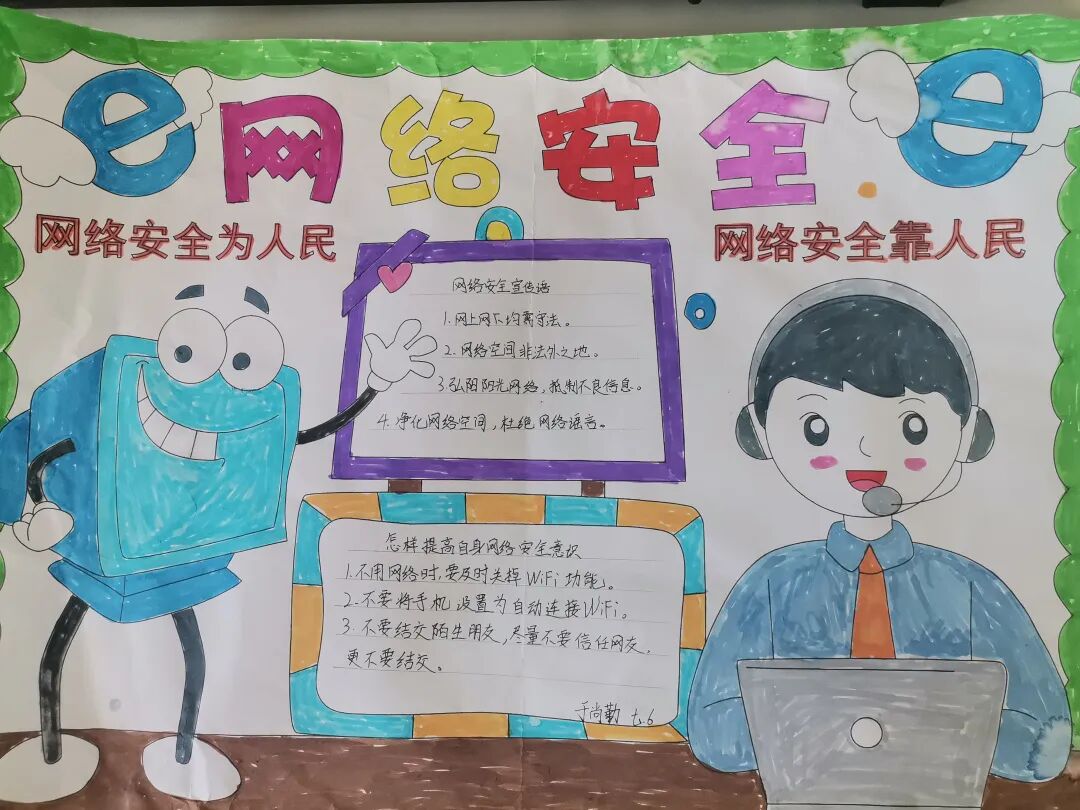 网络安全
网络安全为人民
网络安全靠人民
网络安全宣传语
1.网上网下均需守法。
2.网络空间非法外之地。
3.弘阳阳光网络，抵制不良信息。
4.净化网络空间，杜绝网络谣言。
怎样提高自身网络安全意识
1.不用网络时，要及时关掉WiFi功能。
2.不要将手机设置为自动连接WiFi。
3.不要结交陌生朋友，尽量不要信任网友，
更不要结交。
于尚勤 七.6